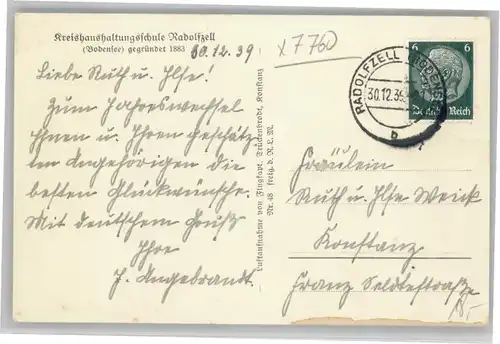 Kreishaushaltungsschule Radolfzell
(Bodensee) gegründet 1883
30.12.39
x7760
Liebe Ruth u. Ilse!
Zum Jahreswechsel
Ihnen u. Ihren geschätz-
ten Angehörigen die
besten Glückwünsche.
Mit deutschem Gruß
Ihre
J. Angebrandt.
Luftaufnahme von Flugkapt. Truckenbrodt, Konstanz
Nr. 48 freig. d. R.L.M.
6 6
Deutsches Reich
RADOLFZELL (BODENSEE)
30.12.39
b
Fräulein
Ruth u. Ilse Weick
Konstanz
Franz Seldtestraße